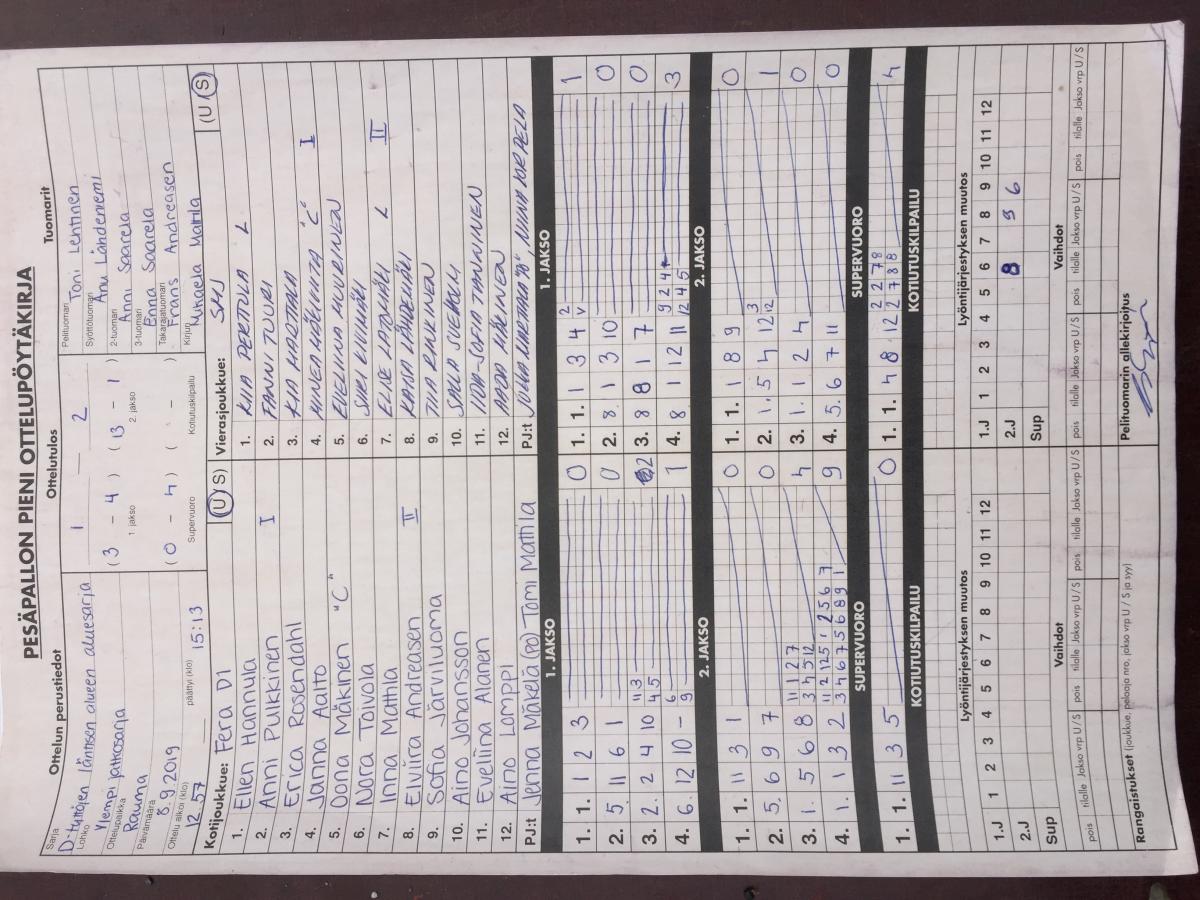 PESÄPALLON PIENI OTTELUPÖYTÄKIRJA
Ottelun perustiedot
Sarja
D-tyttöjen läntisen alueen aluesarja
Lohko
Ylempi jatkosarja
Ottelupaikka
Rauma
Päivämäärä
8.9.2019
Ottelu alkoi (klo)
12.57
päättyi (klo)
15:13
Ottelutulos
1 — 2
(3 - 4) (13 - 1)
1 jakso 2. jakso
(0 - 4) ( - )
Supervuoro Kotiutuskilpailu
Tuomarit
Pelituomari Toni Lehtinen
Syöttötuomari Anu Lähdeniemi
2-tuomari Anni Saarela
3-tuomari Enna Saarela
Takarajatuomari Frans Andreasen
Kirjuri Mikaela Mattila
Kotijoukkue: Fera D1 (U S)
1. Ellen Hannula
2. Anni Pulkkinen I
3. Erica Rosendahl
4. Janna Aalto
5. Oona Mäkinen "C"
6. Nora Toivola
7. Inna Mattila
8. Elviira Andreasen II
9. Sofia Järviluoma
10. Aino Johansson
11. Eveliina Alanen
12. Aino Lomppi
PJ:t Jenna Mäkelä (po) Tomi Mattila
Vierasjoukkue: SMJ (U S)
1. KIIA PERTTULA L
2. FANNI TUURI
3. KIIA HAATAJA
4. "C" I
5. EVELIINA MUURINEN
6.
7. L II
8. KAISA LÄHDEMÄKI
9. TIIA RINKINEN
10.
11. IIDA-SOFIA TANNINEN
12.
PJ:t
1. JAKSO
1. 1. 1 2 3 0
2. 5. 11 6 1 0
3. 2. 2 4 10 2
4. 6. 12 10 - 1
1. JAKSO
1. 1. 1 3 4 1
2. 8 1 3 10 0
3. 8 8 1 7 0
4. 8 1 12 11 3
2. JAKSO
1. 1. 11 3 1 0
2. 5. 6 9 7 0
3. 1. 5 6 8 4
4. 1. 1 3 2 9
2. JAKSO
1. 1. 1 8 9 0
2. 1. 5 4 12 1
3. 1. 1 2 4 0
4. 5. 6 7 11 0
SUPERVUORO
1. 1. 11 3 5 0
SUPERVUORO
1. 1. 4 8 12 4
KOTIUTUSKILPAILU
KOTIUTUSKILPAILU
Lyöntijärjestyksen muutos
1.J 1 2 3 4 5 6 7 8 9 10 11 12
2.J
Sup
Lyöntijärjestyksen muutos
1.J 1 2 3 4 5 6 7 8 9 10 11 12
2.J 8 9 6
Sup
Vaihdot
pois tilalle Jakso vrp U / S pois tilalle Jakso vrp U / S pois tilalle Jakso vrp U / S
Vaihdot
pois tilalle Jakso vrp U / S pois tilalle Jakso vrp U / S pois tilalle Jakso vrp U / S
Rangaistukset (joukkue, pelaaja nro, jakso vrp U / S ja syy)
Pelituomarin allekirjoitus